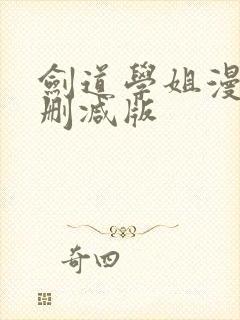 劍道學姐漫
刪減版
奇四